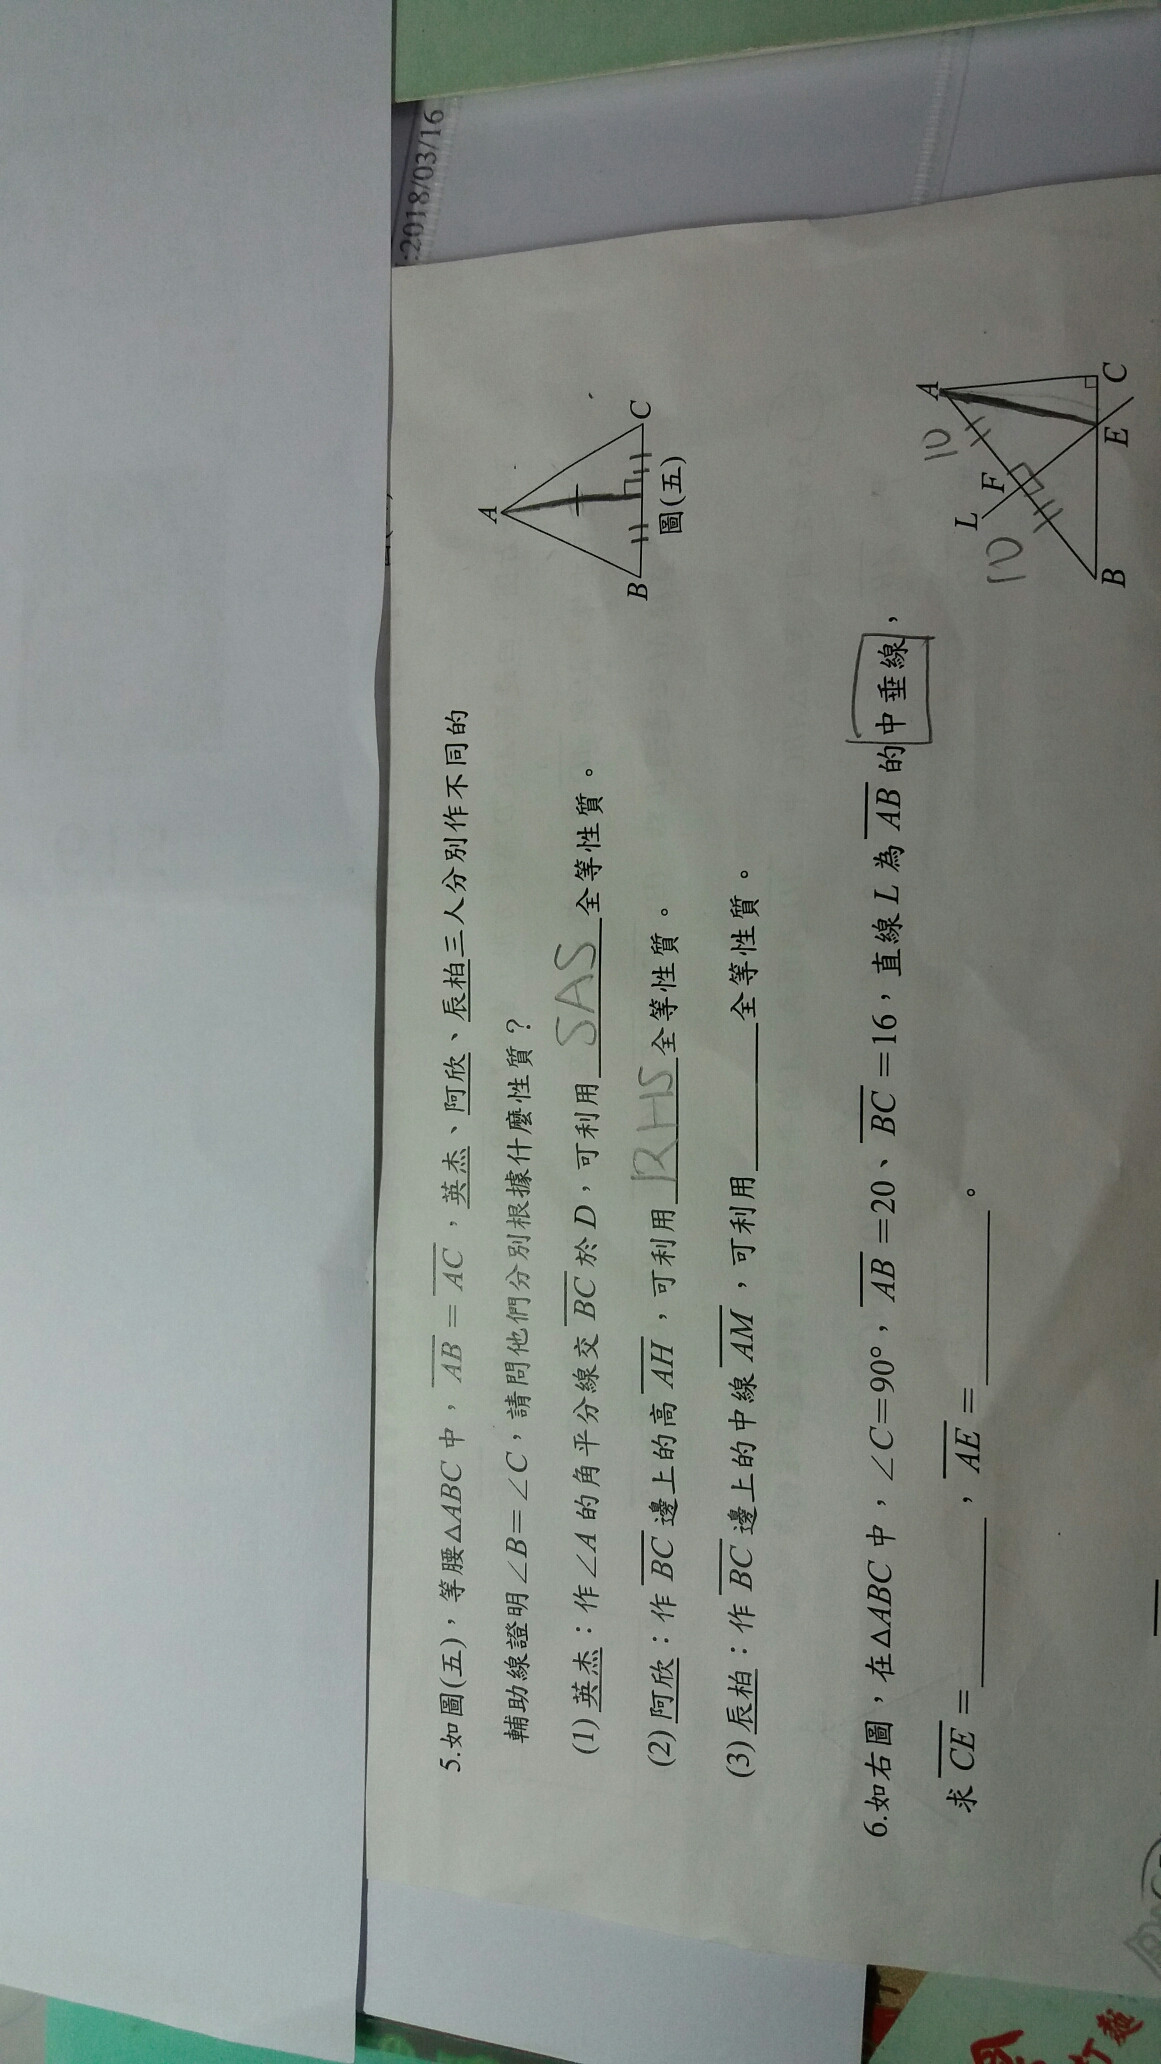 :2018/03/16
5.如圖(五)，等腰△ABC中，AB=AC，英杰、阿欣、辰柏三人分別作不同的
輔助線證明∠B=∠C，請問他們分別根據什麼性質？
(1)英杰：作∠A的角平分線交BC於D，可利用SAS全等性質。
(2)阿欣：作BC邊上的高AH，可利用RHS全等性質。
(3)辰柏：作BC邊上的中線AM，可利用______全等性質。
A
B
C
圖(五)
6.如右圖，在△ABC中，∠C=90°，AB=20、BC=16，直線L為AB的中垂線，
求CE=______，AE=______。
A
10
L
F
10
B
E
C